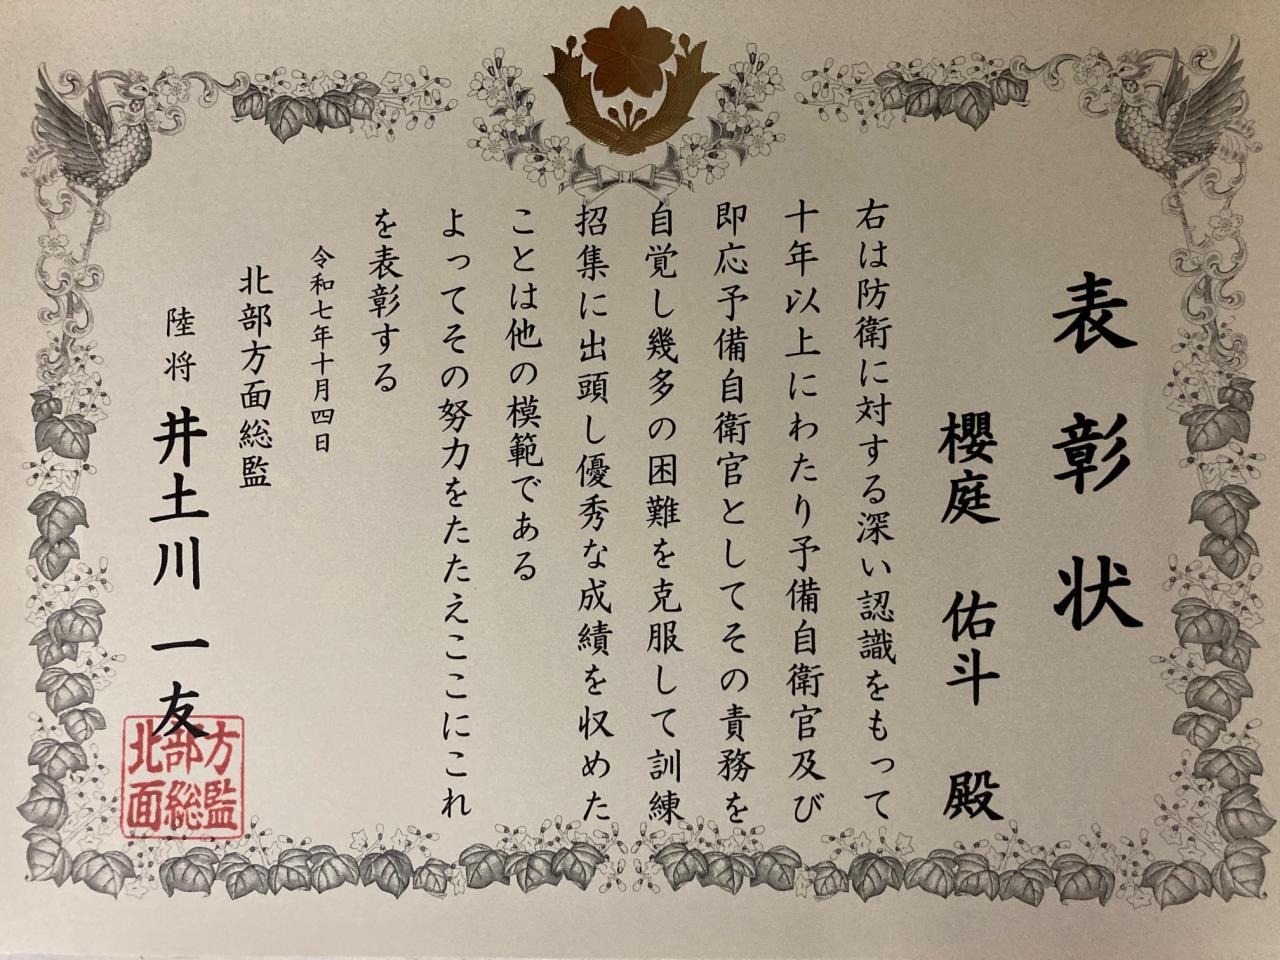 表彰状
櫻庭 佑斗 殿
右は防衛に対する深い認識をもって
十年以上にわたり予備自衛官及び
即応予備自衛官としてその責務を
自覚し幾多の困難を克服して訓練
招集に出頭し優秀な成績を収めた
ことは他の模範である
よってその努力をたたえここにこれ
を表彰する
令和七年十月四日
北部方面総監
陸将 井土川 一友
北部方
面総監